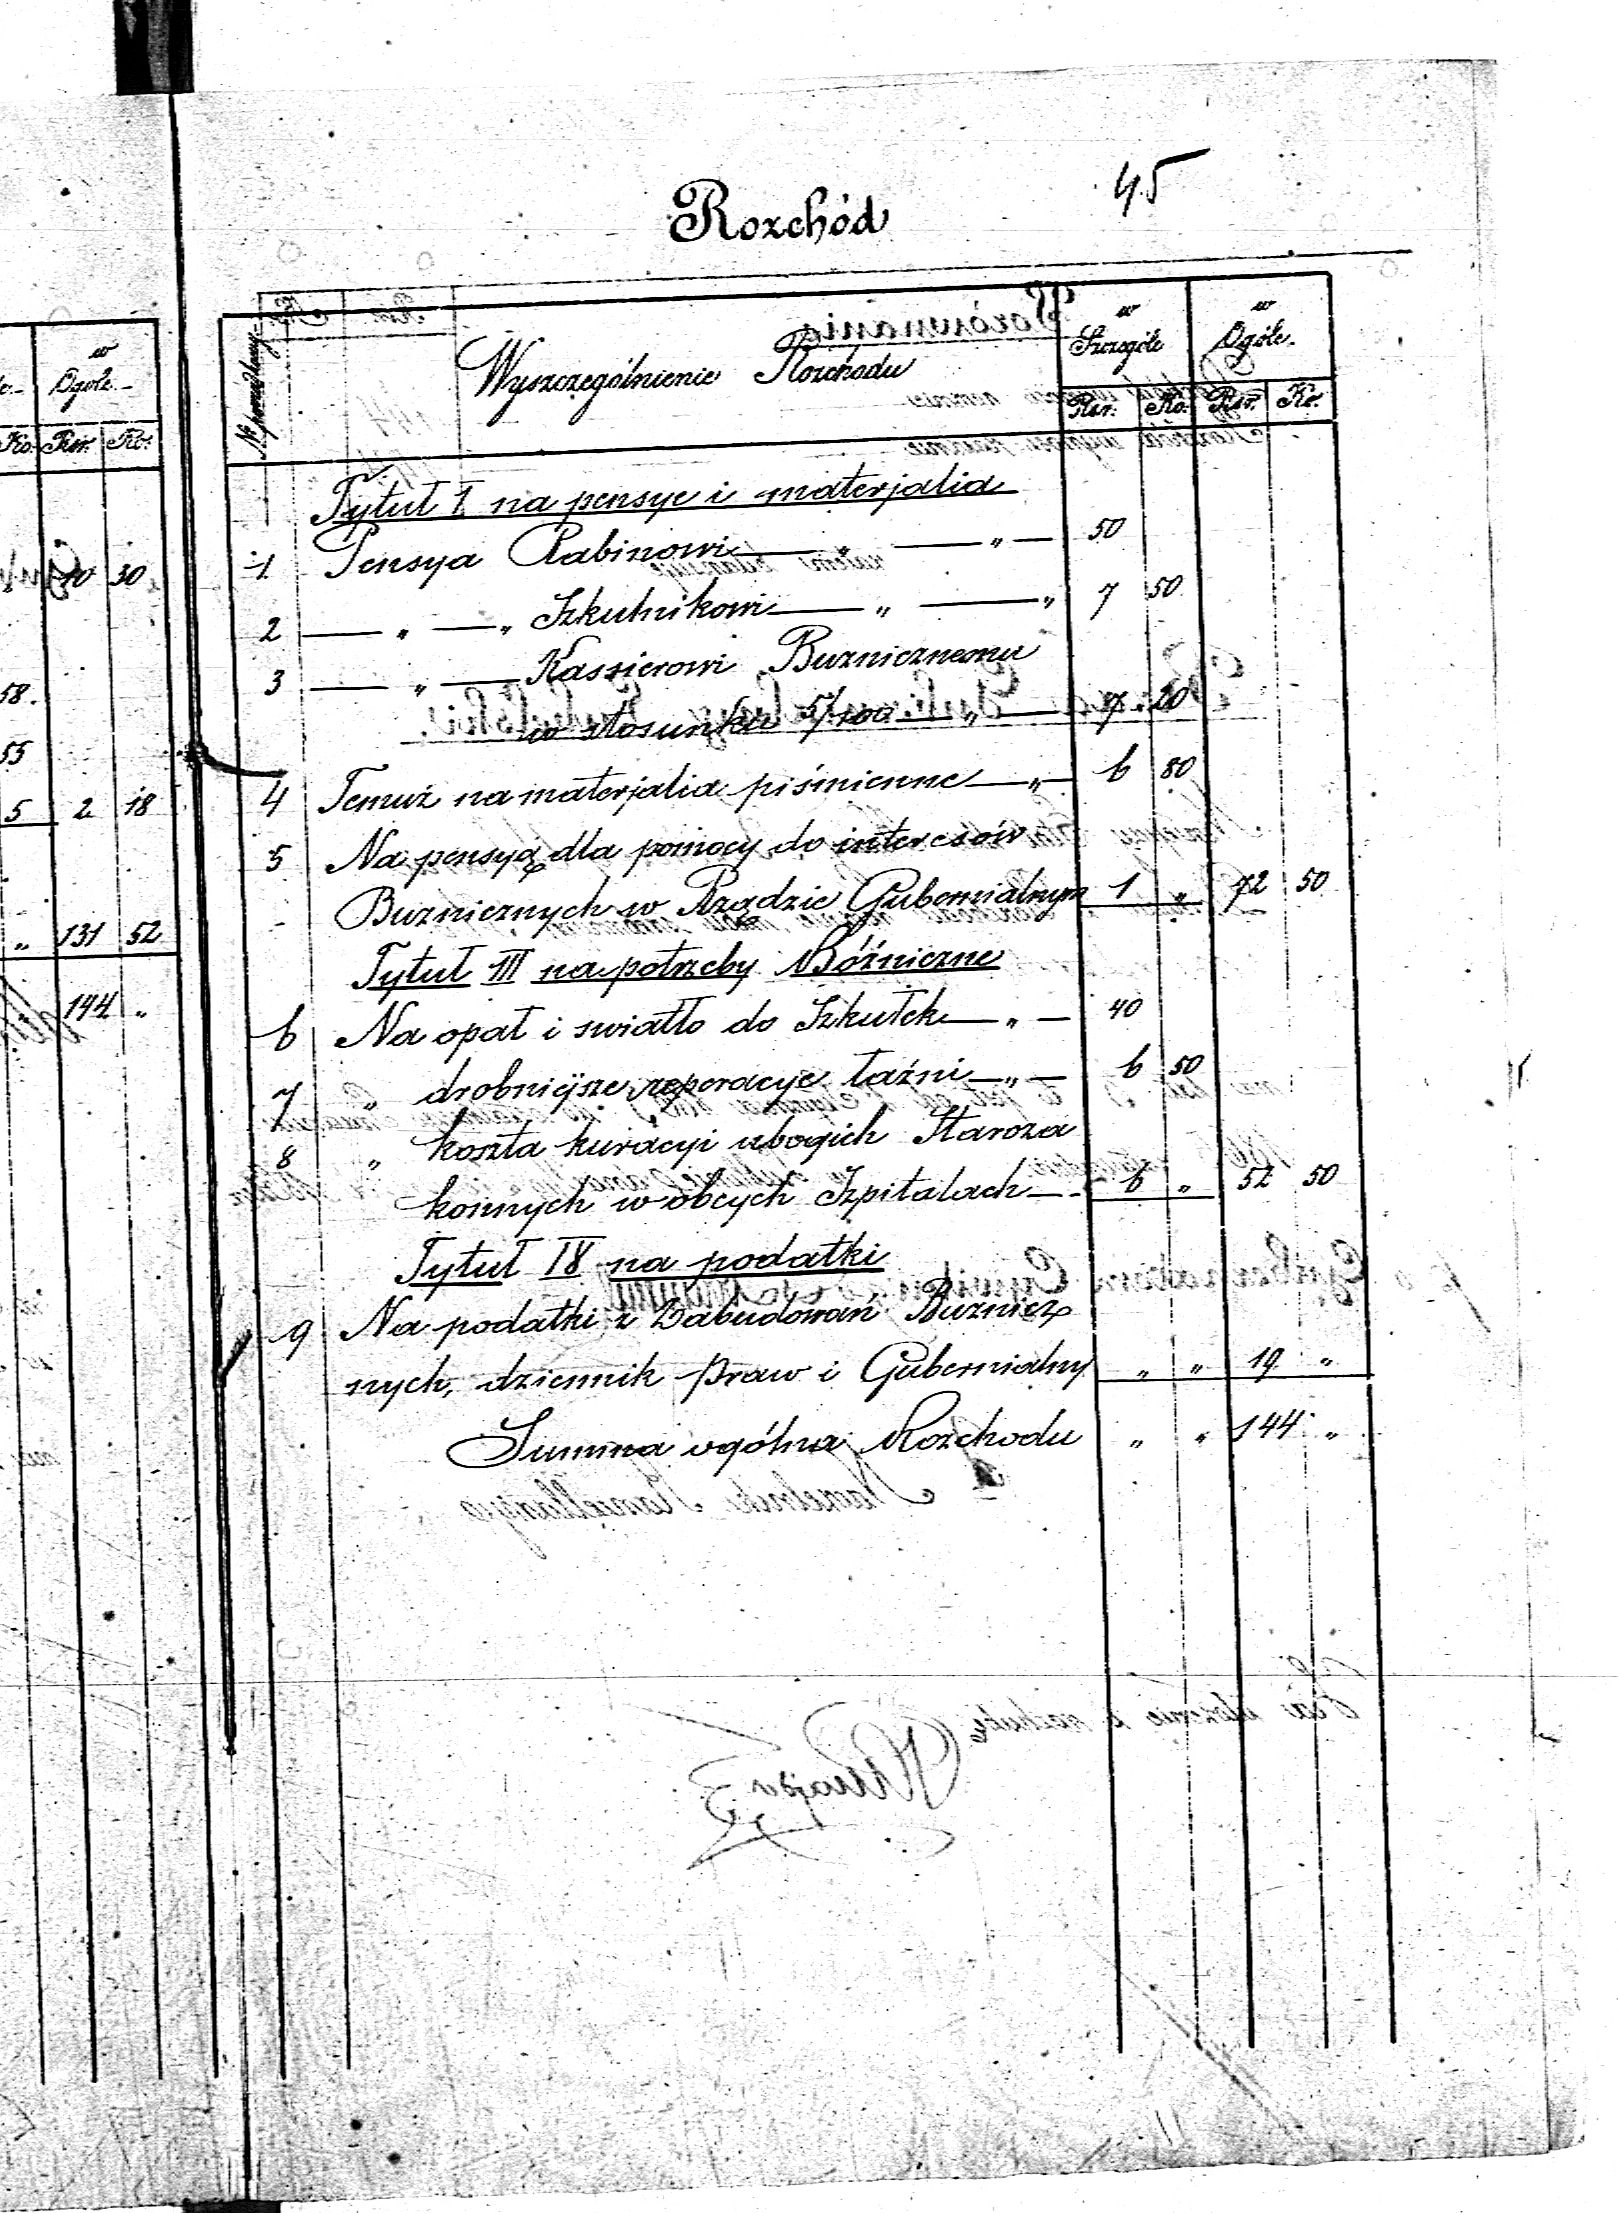 45
Rozchód
w Ogóle.
Ko. Rsr. Ko.
10 30
58.
55
5 2 18
„ 131 52
144 „
Wyszczególnienie Rozchodu w Szczególe w Ogóle.
Rsr. Ko. Rsr. Ko.
Tytuł I na pensye i materjalia
1 Pensya Rabinowi — „ — „ — 50
2 — „ — „ Szkulnikowi — „ — „ 7 50
3 — „ — Kassierowi Buznicznemu
w stosunku 5/100 — „ — 7 20
4 Temuż na materjalia piśmienne — „ — 6 80
5 Na pensyą dla pomocy do interesów
Buznicznych w Rządzie Gubernialnym 1 „ 72 50
Tytuł III na potrzeby Bóźniczne
6 Na opał i swiatło do Szkułek — „ — 40
7 „ drobniejsze reperacye łaźni — „ — 6 50
8 „ koszta kuracyi ubogich Staroza
konnych w obcych Szpitalach — 6 „ 52 50
Tytuł IV na podatki
9 Na podatki z Zabudowań Buznicz
nych, dziennik praw i Gubernialny „ „ 19 „
Summa ogólna Rozchodu „ „ 144 „